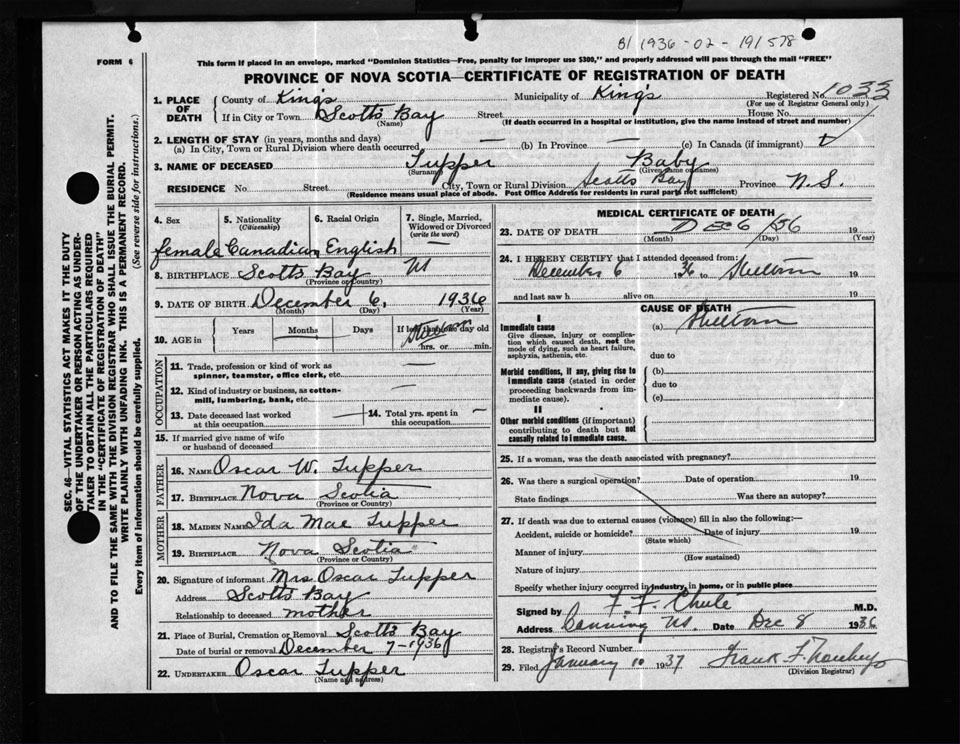 B1 1936-02-191578
FORM 6
This form if placed in an envelope, marked "Dominion Statistics—Free, penalty for improper use $300," and properly addressed will pass through the mail "FREE"
PROVINCE OF NOVA SCOTIA—CERTIFICATE OF REGISTRATION OF DEATH
1. PLACE OF DEATH County of King's Municipality of King's Registered No. 1033
(For use of Registrar General only)
If in City or Town Scotts Bay Street House No.
(Name) (If death occurred in a hospital or institution, give the name instead of street and number)
2. LENGTH OF STAY (in years, months and days)
(a) In City, Town or Rural Division where death occurred — (b) In Province — (c) In Canada (if immigrant)
3. NAME OF DECEASED Tupper Baby
(Surname) (Given name or names)
RESIDENCE No. Street City, Town or Rural Division Scotts Bay Province N.S.
(Residence means usual place of abode. Post Office Address for residents in rural parts not sufficient)
4. Sex 5. Nationality (Citizenship) 6. Racial Origin 7. Single, Married, Widowed or Divorced (write the word)
female Canadian English —
8. BIRTHPLACE Scotts Bay
(Province or Country)
9. DATE OF BIRTH December 6, 1936
(Month) (Day) (Year)
10. AGE in Years Months Days If less than one day old
hrs. or min.
OCCUPATION
11. Trade, profession or kind of work as spinner, teamster, office clerk, etc. —
12. Kind of industry or business, as cotton-mill, lumbering, bank, etc. —
13. Date deceased last worked at this occupation — 14. Total yrs. spent in this occupation —
15. If married give name of wife or husband of deceased
FATHER
16. NAME Oscar W. Tupper
17. BIRTHPLACE Nova Scotia
(Province or Country)
MOTHER
18. MAIDEN NAME Ida Mae Tupper
19. BIRTHPLACE Nova Scotia
(Province or Country)
20. Signature of informant Mrs Oscar Tupper
Address Scotts Bay
Relationship to deceased mother
21. Place of Burial, Cremation or Removal Scotts Bay
Date of burial or removal December 7-1936
22. UNDERTAKER Oscar Tupper
(Name and address)
MEDICAL CERTIFICATE OF DEATH
23. DATE OF DEATH 19
(Month) (Day) (Year)
24. I HEREBY CERTIFY that I attended deceased from:
December 6 36 to 19
and last saw h alive on 19
CAUSE OF DEATH
I
Immediate cause
Give disease, injury or complication which caused death, not the mode of dying, such as heart failure, asphyxia, asthenia, etc.
(a)
due to
Morbid conditions, if any, giving rise to immediate cause (stated in order proceeding backwards from immediate cause).
(b)
due to
(c)
II
Other morbid conditions (if important) contributing to death but not causally related to immediate cause.
25. If a woman, was the death associated with pregnancy?
26. Was there a surgical operation? Date of operation 19
State findings Was there an autopsy?
27. If death was due to external causes (violence) fill in also the following:—
Accident, suicide or homicide? Date of injury 19
(State which)
Manner of injury
(How sustained)
Nature of injury
Specify whether injury occurred in industry, in home, or in public place
Signed by M.D.
Address Canning Date Dec 8 1936
28. Registrar's Record Number
29. Filed January 10 1937 Frank F.
(Division Registrar)
SEC. 46—VITAL STATISTICS ACT MAKES IT THE DUTY
OF THE UNDERTAKER OR PERSON ACTING AS UNDER-
TAKER TO OBTAIN ALL THE PARTICULARS REQUIRED
IN THE "CERTIFICATE OF REGISTRATION OF DEATH"
AND TO FILE THE SAME WITH THE DIVISION REGISTRAR WHO SHALL ISSUE THE BURIAL PERMIT.
WRITE PLAINLY WITH UNFADING INK. THIS IS A PERMANENT RECORD.
Every item of information should be carefully supplied. (See reverse side for instructions.)